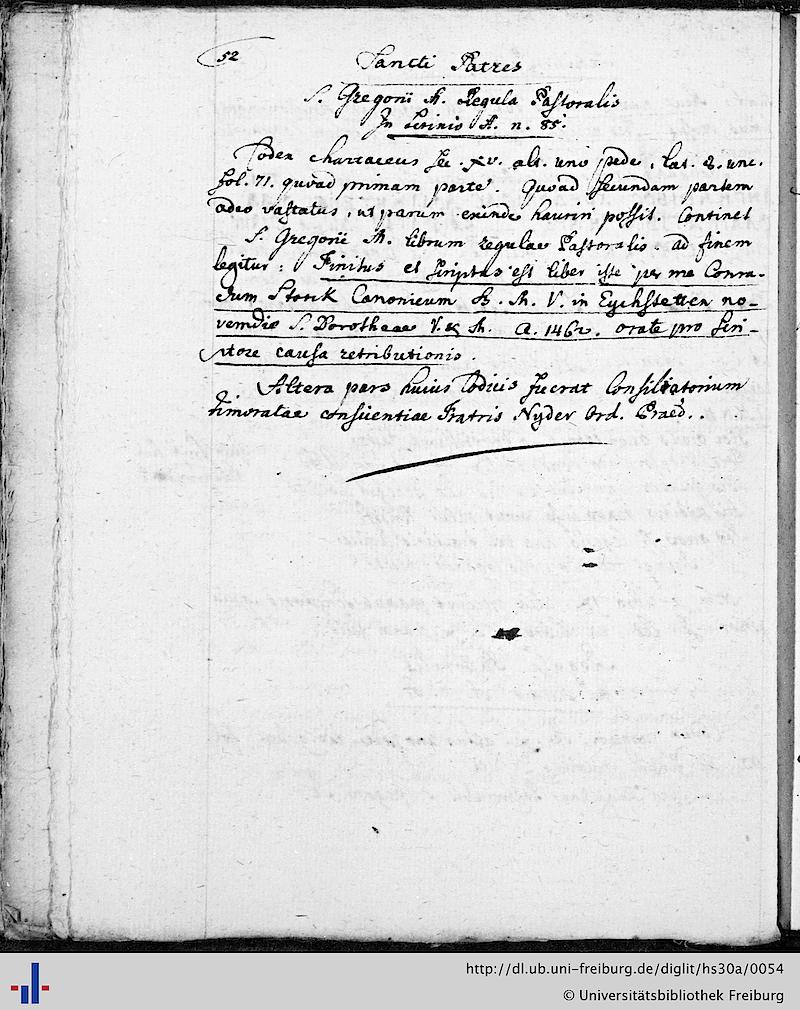 52
Sancti Patres
S. Gregorii M. Regula Pastoralis
In scrinio A. n. 85.
Codex chartaceus sec. XV. alt. uno pede, lat. 8. unc.
fol. 71. quoad primam parte. Quoad secundam partem
adeo vastatus, ut parum exinde hauriri possit. Continet
S. Gregorii M. librum regulae Pastoralis. ad finem
legitur: Finitus et scriptus est liber iste per me Conra-
dum Storck Canonicum B. M. V. in Eychstetten no-
vemdie S. Dorotheae V. & M. A. 1462. orate pro scri-
ptore causa retributionis.
Altera pars huius Codicis fuerat Consiliatorium
timoratae consientiae Fratris Nyder Ord. Praed.
http://dl.ub.uni-freiburg.de/diglit/hs30a/0054
© Universitätsbibliothek Freiburg